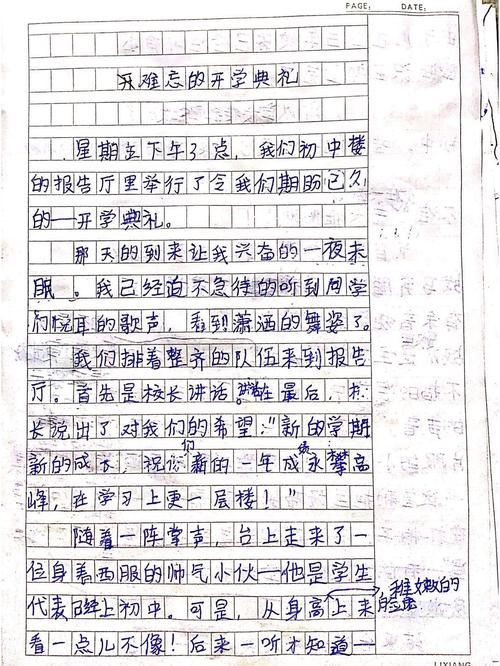 PAGE: DATE:
难忘的开学典礼
星期五下午3点，我们初中楼
的报告厅里举行了令我们期盼已久
的一开学典礼。
那天的到来让我兴奋的一夜未
眠。我已经迫不急待的听到同学
们悦耳的歌声，看到潇洒的舞姿了。
我们排着整齐的队伍来到报告
厅。首先是校长讲话。在最后，校
长说出了对我们的希望："新的学期
新的成长，祝你们新的一年成绩永攀高
峰，在学习上更一层楼！"
随着一阵掌声，台上走来了一
位身着西服的帅气小伙—他是学生
代表已经上初中。可是，从身高上来，稚嫩的脸蛋
看一点儿不像！后来一听才知道一
LIXIANG